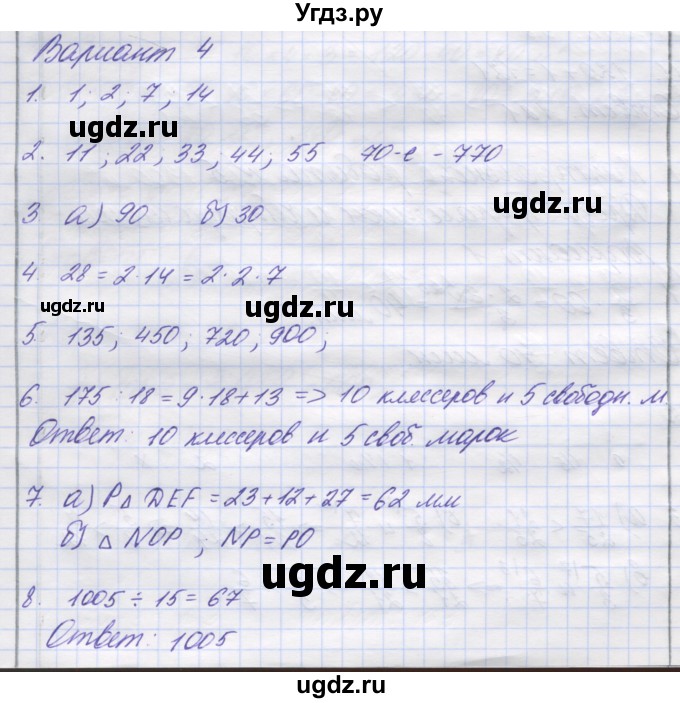 Угдз.ру
Вариант 4
1. 1; 2; 7; 14
ugdz.ru
2. 11; 22; 33; 44; 55 70-е - 770
ugdz.ru
3 а) 90 б) 30
4. 28 = 2·14 = 2·2·7
ugdz.ru
ugdz.ru
5. 135; 450; 720; 900;
6. 175 : 18 = 9·18+13 => 10 клессеров и 5 свободн. м.
Ответ: 10 клссеров и 5 своб. марок
7. а) P△ DEF = 23+12+27 = 62 мм
б) △ NOP ; NP = PO
ugdz.ru
8. 1005 ÷ 15 = 67
Ответ: 1005
ugdz.ru